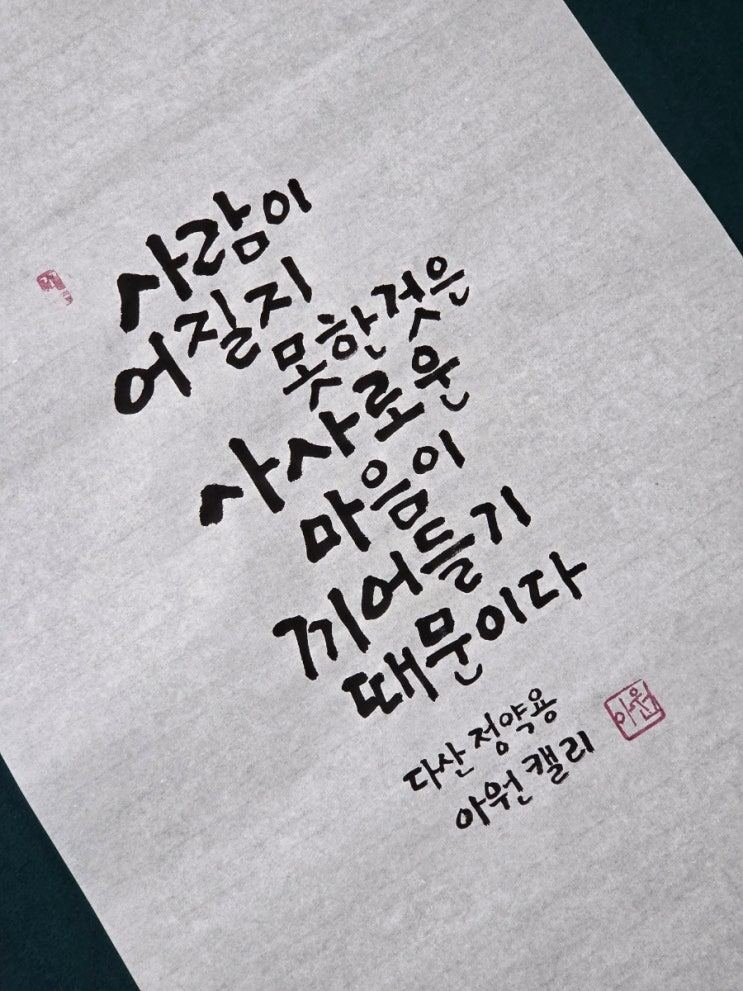 사람이
어질지
못한것은
사사로운
마음이
끼어들기
때문이다
다산 정약용
아원 캘리
아원